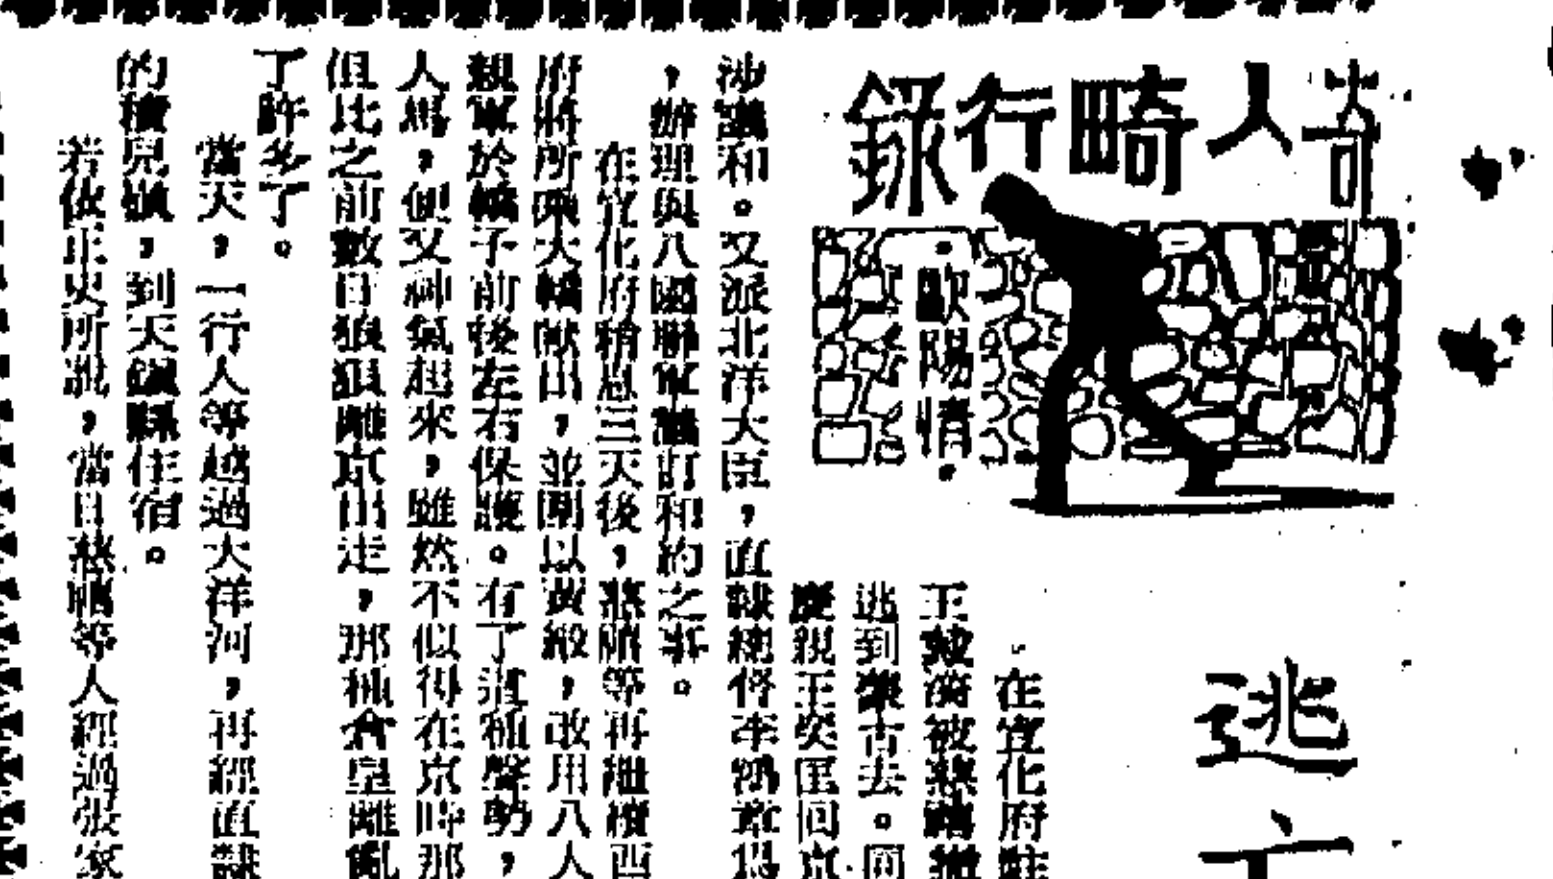 奇人畸行錄
·歐陽情·
逃
在宣化府駐
王載漪被慈禧
逃到蒙古去。同
慶親王奕匡回京
涉議和。又派北洋大臣,直隸總督李鴻章為
,辦理與八國聯軍議訂和約之事。
在宣化府稍息三天後,慈禧等再繼續西
府將所乘大轎獻出,並圍以黃緞,改用八人
親軍於轎子前後左右保護。有了這種聲勢,
人馬,便又神氣起來,雖然不似得在京時那
但比之前數日狼狽離京出走,那種倉皇離亂
了許多了。
當天,一行人等越過大洋河,再經直隸
的積兒嶺,到天鎮縣住宿。
若依正史所說,當日慈禧等人經過張家